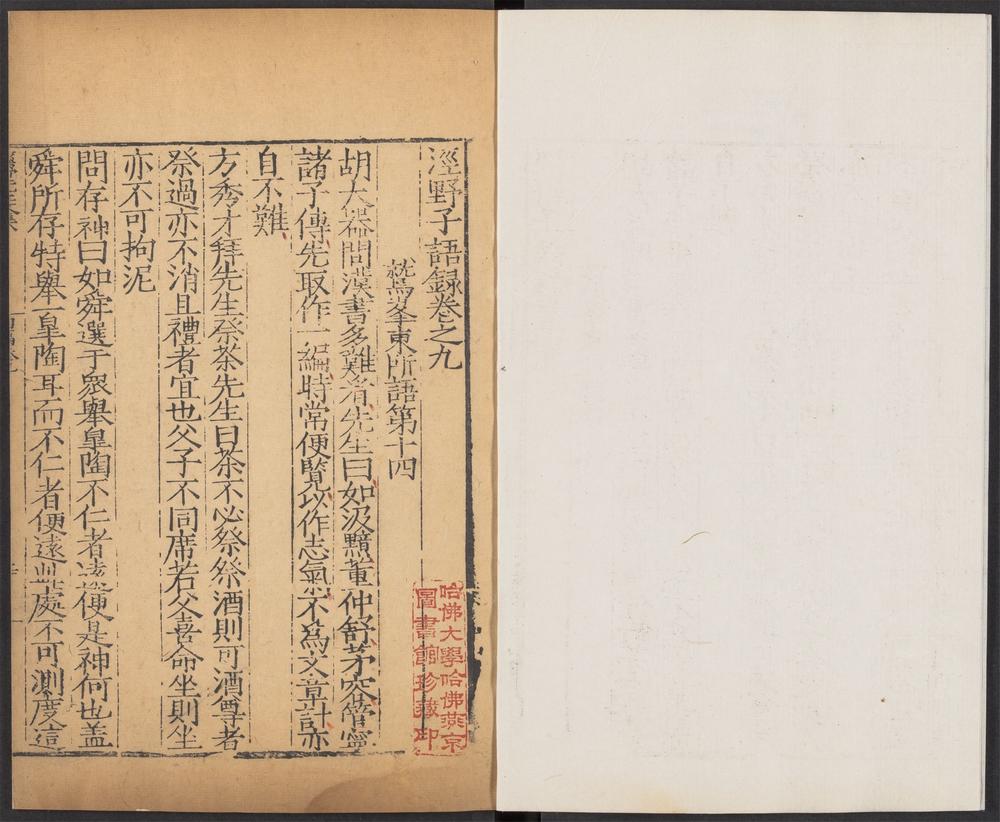 涇野子語錄卷之九
鷲峯東所語第十四
胡大器問漢書多難看先生曰如汲黯董仲舒茅容管寧
諸子傳先取作一編時常便覽以作志氣不為文章計亦
自不難
方秀才拜先生祭茶先生曰茶不必祭祭酒則可酒尊者
祭過亦不消且禮者宜也父子不同席若父喜命坐則坐
亦不可拘泥
問存神曰如舜選于衆舉臯陶不仁者遠便是神何也盖
舜所存特舉一臯陶耳而不仁者便遠此處不可測度這
哈佛大學哈佛燕京
圖書館珍藏印